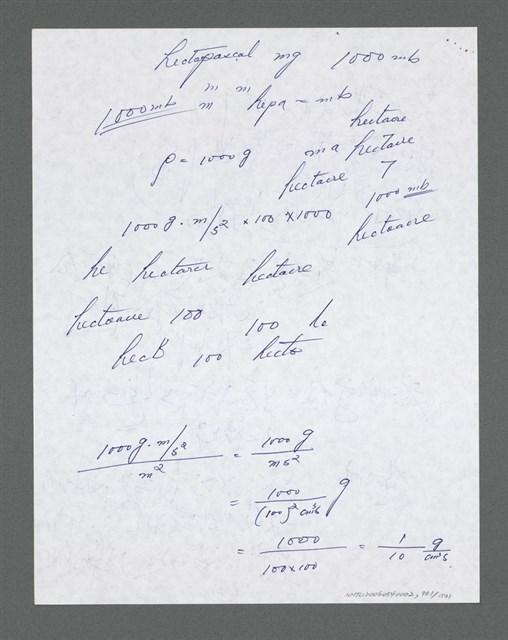 hectopascal mg 1000 mb
m m
1000mb m hepa = mb
hectare
ρ = 1000g ma hectare
hectare 7
1000 mb
1000 g. m/s² × 100 × 1000
hectoare
he hectare hectare
hectoare 100 100 he
hect 100 hecto
1000 g. m/s² / m² = 1000 g / ms²
= 1000 / (100)² cm²s g
= 1000 / 100×100 = 1/10 g / cm²s